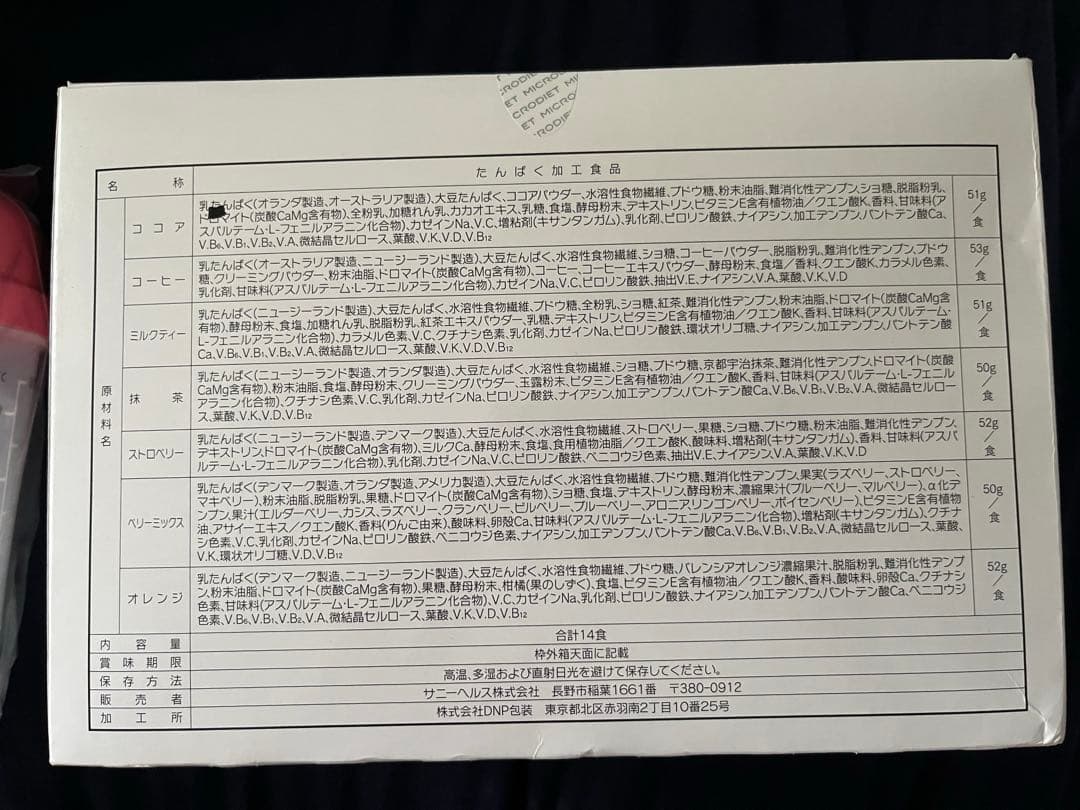 RODIET MICRO
ET MICROD
CRODIET
ET MICR
RODIE
名称 たんぱく加工食品
原材料名
ココア 乳たんぱく(オランダ製造、オーストラリア製造)、大豆たんぱく、ココアパウダー、水溶性食物繊維、ブドウ糖、粉末油脂、難消化性デンプン、ショ糖、脱脂粉乳、
ドロマイト(炭酸CaMg含有物)、全粉乳、加糖れん乳、カカオエキス、乳糖、食塩、酵母粉末、デキストリン、ビタミンE含有植物油/クエン酸K、香料、甘味料(ア
スパルテーム・L-フェニルアラニン化合物)、カゼインNa、V.C、増粘剤(キサンタンガム)、乳化剤、ピロリン酸鉄、ナイアシン、加工デンプン、パントテン酸Ca、
V.B6、V.B1、V.B2、V.A、微結晶セルロース、葉酸、V.K、V.D、V.B12
51g/食
コーヒー 乳たんぱく(オーストラリア製造、ニュージーランド製造)、大豆たんぱく、水溶性食物繊維、ショ糖、コーヒーパウダー、脱脂粉乳、難消化性デンプン、ブドウ
糖、クリーミングパウダー、粉末油脂、ドロマイト(炭酸CaMg含有物)、コーヒー、コーヒーエキスパウダー、酵母粉末、食塩/香料、クエン酸K、カラメル色素、
乳化剤、甘味料(アスパルテーム・L-フェニルアラニン化合物)、カゼインNa、V.C、ピロリン酸鉄、抽出V.E、ナイアシン、V.A、葉酸、V.K、V.D
53g/食
ミルクティー 乳たんぱく(ニュージーランド製造)、大豆たんぱく、水溶性食物繊維、ブドウ糖、全粉乳、ショ糖、紅茶、難消化性デンプン、粉末油脂、ドロマイト(炭酸CaMg含
有物)、酵母粉末、食塩、加糖れん乳、脱脂粉乳、紅茶エキスパウダー、乳糖、デキストリン、ビタミンE含有植物油/クエン酸K、香料、甘味料(アスパルテーム・
L-フェニルアラニン化合物)、カラメル色素、V.C、クチナシ色素、乳化剤、カゼインNa、ピロリン酸鉄、環状オリゴ糖、ナイアシン、加工デンプン、パントテン酸
Ca、V.B6、V.B1、V.B2、V.A、微結晶セルロース、葉酸、V.K、V.D、V.B12
51g/食
抹茶 乳たんぱく(ニュージーランド製造、オランダ製造)、大豆たんぱく、水溶性食物繊維、ショ糖、ブドウ糖、京都宇治抹茶、難消化性デンプン、ドロマイト(炭酸
CaMg含有物)、粉末油脂、食塩、酵母粉末、クリーミングパウダー、玉露粉末、ビタミンE含有植物油/クエン酸K、香料、甘味料(アスパルテーム・L-フェニル
アラニン化合物)、クチナシ色素、V.C、乳化剤、カゼインNa、ピロリン酸鉄、ナイアシン、加工デンプン、パントテン酸Ca、V.B6、V.B1、V.B2、V.A、微結晶セルロー
ス、葉酸、V.K、V.D、V.B12
50g/食
ストロベリー 乳たんぱく(ニュージーランド製造、デンマーク製造)、大豆たんぱく、水溶性食物繊維、ストロベリー、果糖、ショ糖、ブドウ糖、粉末油脂、難消化性デンプン、
デキストリン、ドロマイト(炭酸CaMg含有物)、ミルクCa、酵母粉末、食塩、食用植物油脂/クエン酸K、酸味料、増粘剤(キサンタンガム)、香料、甘味料(アスパ
ルテーム・L-フェニルアラニン化合物)、乳化剤、カゼインNa、V.C、ピロリン酸鉄、ベニコウジ色素、抽出V.E、ナイアシン、V.A、葉酸、V.K、V.D
52g/食
ベリーミックス 乳たんぱく(デンマーク製造、オランダ製造、アメリカ製造)、大豆たんぱく、水溶性食物繊維、ブドウ糖、難消化性デンプン、果実(ラズベリー、ストロベリー、
マキベリー)、粉末油脂、脱脂粉乳、果糖、ドロマイト(炭酸CaMg含有物)、ショ糖、食塩、デキストリン、酵母粉末、濃縮果汁(ブルーベリー、マルベリー)、α化デ
ンプン、果汁(エルダーベリー、カシス、ラズベリー、クランベリー、ビルベリー、ブルーベリー、アロニア、リンゴンベリー、ボイセンベリー)、ビタミンE含有植物
油、アサイーエキス/クエン酸K、香料(りんご由来)、酸味料、卵殻Ca、甘味料(アスパルテーム・L-フェニルアラニン化合物)、増粘剤(キサンタンガム)、クチナ
シ色素、V.C、乳化剤、カゼインNa、ピロリン酸鉄、ベニコウジ色素、ナイアシン、加工デンプン、パントテン酸Ca、V.B6、V.B1、V.B2、V.A、微結晶セルロース、葉酸、
V.K、環状オリゴ糖、V.D、V.B12
50g/食
オレンジ 乳たんぱく(デンマーク製造、ニュージーランド製造)、大豆たんぱく、水溶性食物繊維、ブドウ糖、バレンシアオレンジ濃縮果汁、脱脂粉乳、難消化性デンプ
ン、粉末油脂、ドロマイト(炭酸CaMg含有物)、果糖、酵母粉末、柑橘(果のしずく)、食塩、ビタミンE含有植物油/クエン酸K、香料、酸味料、卵殻Ca、クチナシ
色素、甘味料(アスパルテーム・L-フェニルアラニン化合物)、V.C、カゼインNa、乳化剤、ピロリン酸鉄、ナイアシン、加工デンプン、パントテン酸Ca、ベニコウジ
色素、V.B6、V.B1、V.B2、V.A、微結晶セルロース、葉酸、V.K、V.D、V.B12
52g/食
内容量 合計14食
賞味期限 枠外箱天面に記載
保存方法 高温、多湿および直射日光を避けて保存してください。
販売者 サニーヘルス株式会社 長野市稲葉1661番 〒380-0912
加工所 株式会社DNP包装 東京都北区赤羽南2丁目10番25号